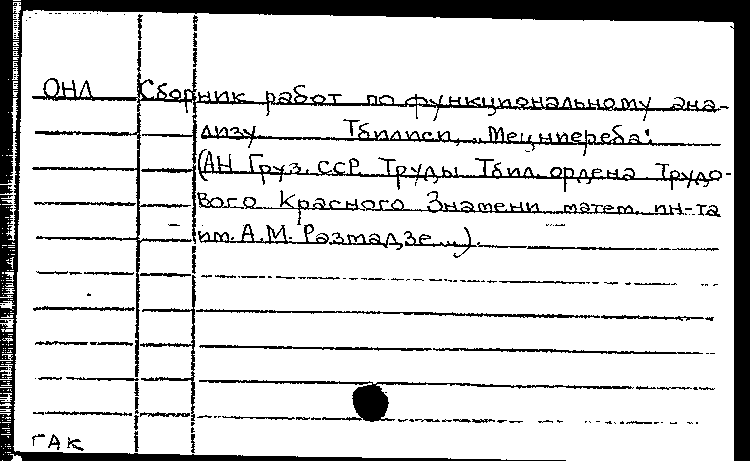 ОНЛ Сборник работ по функциональному ана-
лизу Тбилиси, „Мецниереба":
(АН Груз. ССР. Труды Тбил. ордена Трудо-
вого Красного Знамени матем. ин-та
им. А.М. Размадзе...).
ГАК